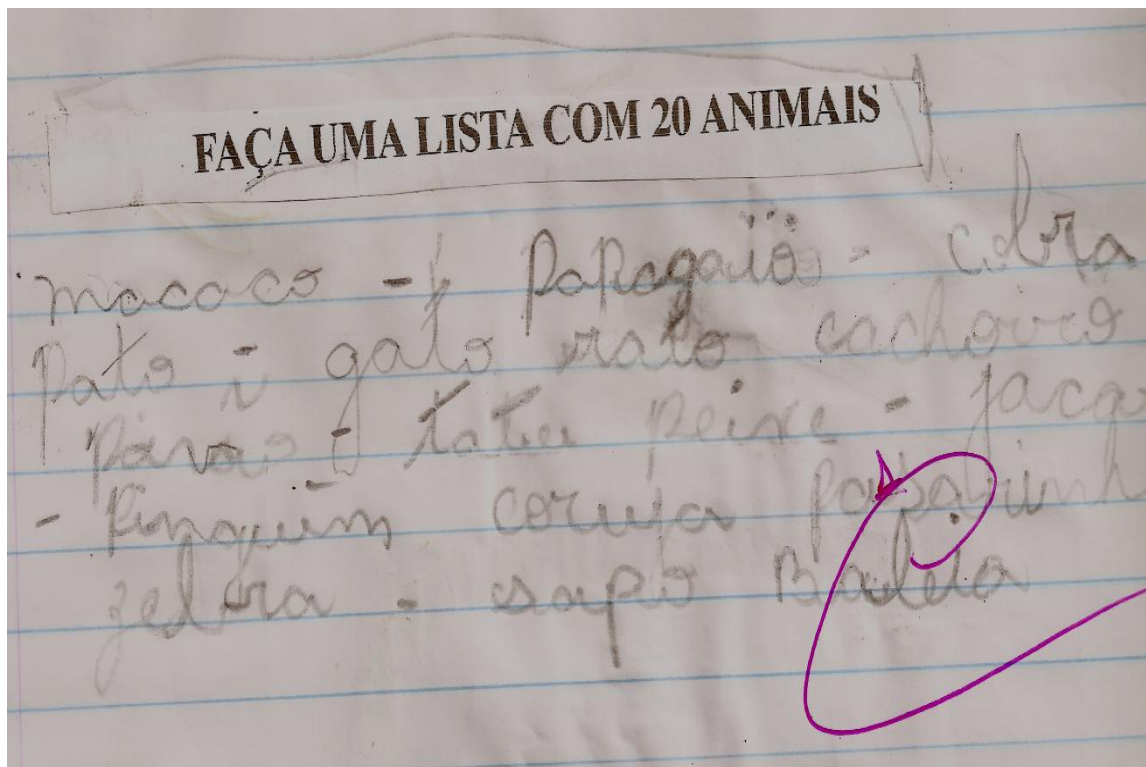 FAÇA UMA LISTA COM 20 ANIMAIS
macaco - papagaio - cobra
pato - gato rato cachorro
pavão - tatu peixe - jaca
- pinguim coruja
zebra - sapo Baleia